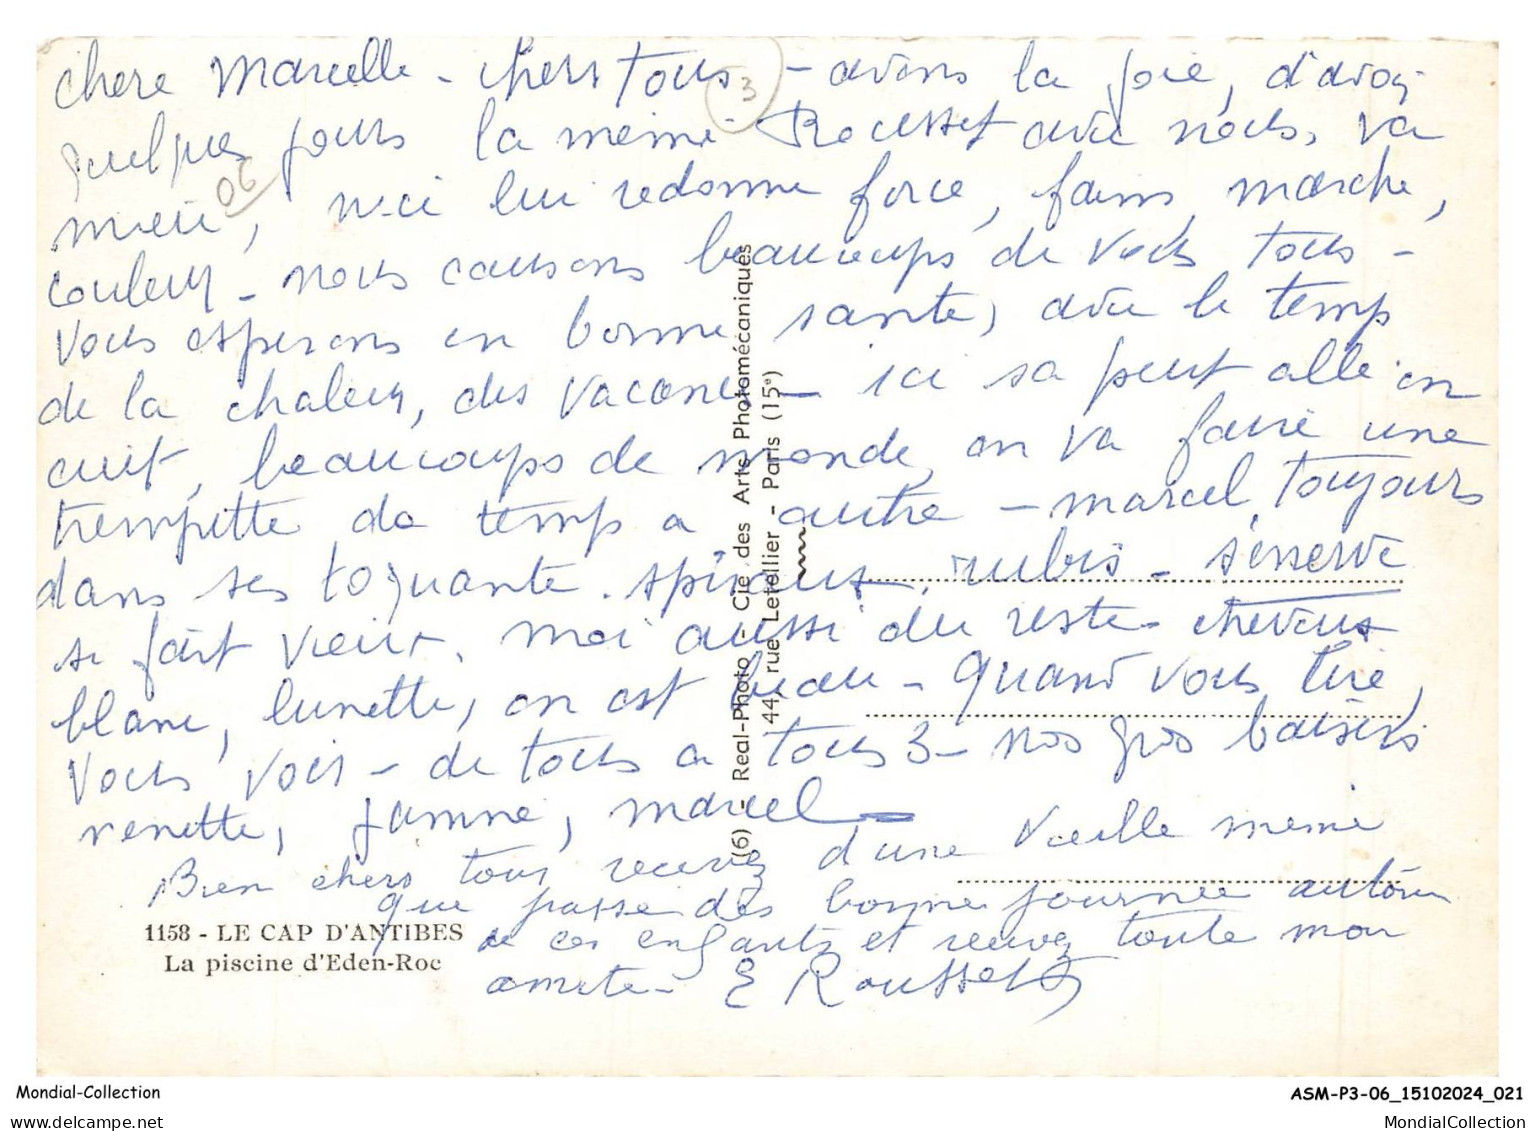 chere Marcelle - chers tous - avons la joie, d'avoir
quelques jours la mémé Rousset avec nous, va
mieu, nice lui redonne force, faim, marche,
couleur - nous causons beaucoups de vous tous -
Vous esperons en bonne santé, avec le temp
de la chaleur, des vacance - ici sa peut allé on
cuit, beaucoups de monde, on va faire une
trempette de temp a autre - marcel, toujours
dans ses toquante. spiraux, rubis - sénerve
se fait vieux, moi aussi du reste - cheveux
blanc, lunette, on est beau - quand vous
vous voir - de tous a tous 3 - nos gros baisers
renette, jamine, marcel
Bien chers tous recevez d'une vieille mémé
que passe des bonne journée autour
de ces enfants et recevez toute mon
amitié - E Rousset
3
06
1158 - LE CAP D'ANTIBES
La piscine d'Eden-Roc
(6) - Real-Photo - Cie des Arts Photomécaniques
44, rue Letellier - Paris (15e)
Mondial-Collection
ASM-P3-06_15102024_021
MondialCollection